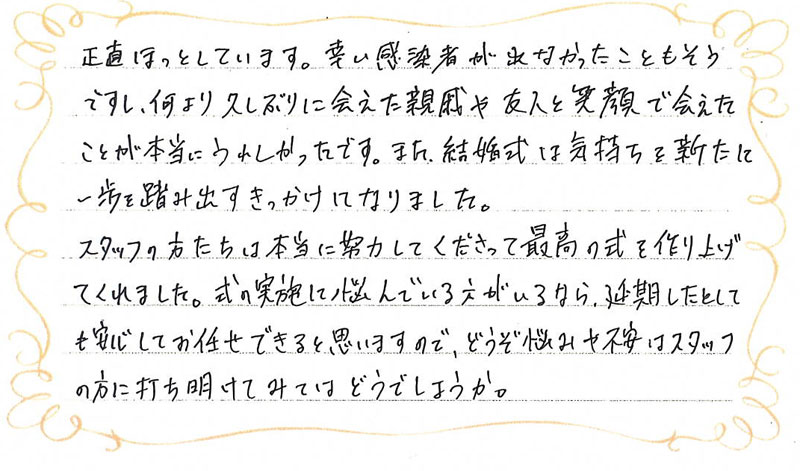 正直ほっとしています。幸い感染者が出なかったこともそう
ですし、何より久しぶりに会えた親戚や友人と笑顔で会えた
ことが本当にうれしかったです。また、結婚式は気持ちを新たに
一歩を踏み出すきっかけになりました。
スタッフの方たちは本当に努力してくださって最高の式を作り上げ
てくれました。式の実施に悩んでいる方がいるなら、延期したとして
も安心してお任せできると思いますので、どうぞ悩みや不安はスタッフ
の方に打ち明けてみてはどうでしょうか。